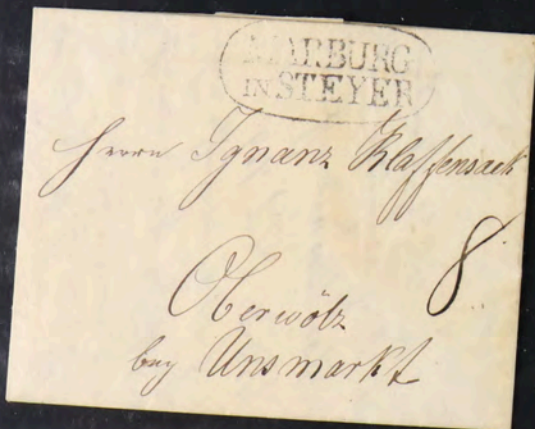 MARBURG
IN STEYER
Herrn Ignanz Klaffensack
8
Oberwölz
bey Unsmarkt